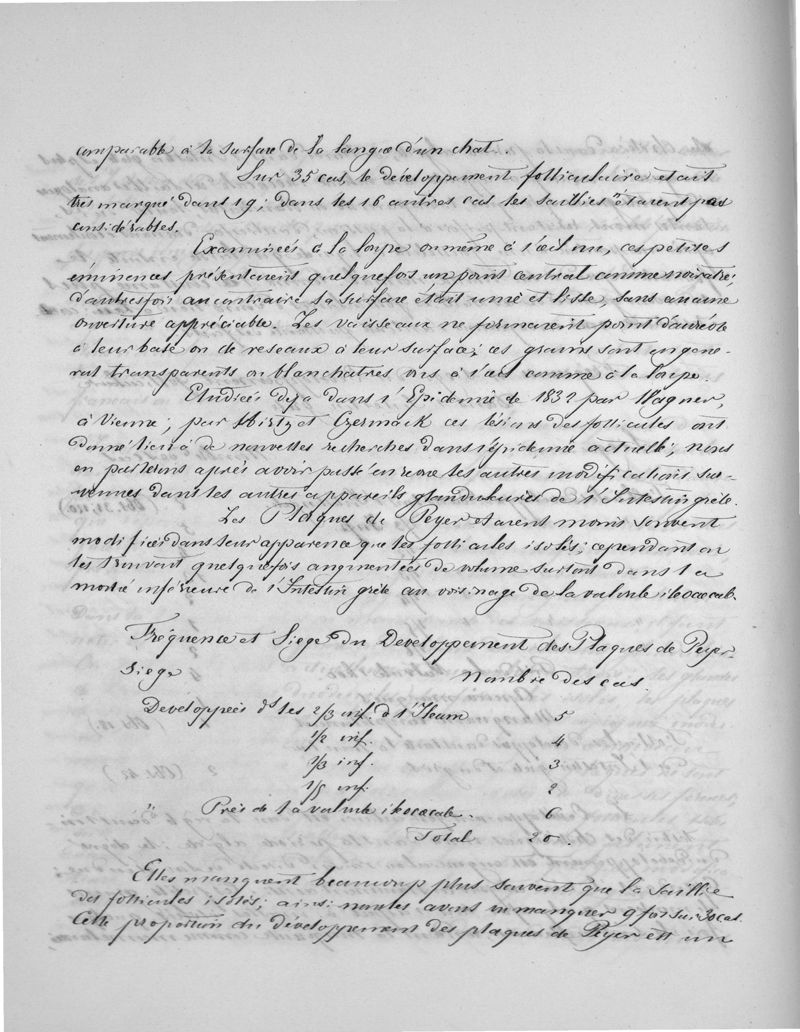 comparable à la surface de la langue d'un chat.
Sur 35 cas, le développement folliculaire était
très marqué dans 19; dans les 16 autres cas les saillies étaient peu
considérables.
Examinées à la loupe ou même à l'œil nu, ces petites
éminences présentaient quelquefois un point central comme noirâtre;
d'autres fois au contraire la surface était unie et lisse, sans aucune
ouverture appréciable. Les vaisseaux ne formaient point d'auréole
à leur base ou de réseaux à leur surface; ces grains sont en géné-
ral transparents ou blanchatrés vus à l'œil comme à la loupe.
Etudiées déja dans l'Epidemie de 1832 par Wagner,
à Vienne; par Hirtz et Czermack ces lésions des follicules ont
donné lieu à de nouvelles recherches dans l'épidemie actuelle; nous
en parlerons après avoir passé en revue les autres modifications sur-
venues dans les autres appareils glandulaires de l'Intestin grêle.
Les Plaques de Peyer étaient moins souvent
modifiées dans leur apparence que les follicules isolés; cependant on
les trouvait quelquefois augmentées de volume surtout dans la
moitié inférieure de l'Intestin grêle au voisinage de la valvule iléocœcale.
Fréquence et Siege du Developpement des Plaques de Peyer
Siege Nombre des cas.
Developpées ds les 2/3 inf. d l'Ileum 5
1/2 inf. 4
1/3 inf. 3
1/5 inf. 2
" Près de la valvule iléocœcale. 6
Total 20.
Elles manquent beaucoup plus souvent que la saillie
des follicules isolés; ainsi nous les avons vu manquer 9 fois sur 30 cas.
Cette proportion du développement des plaques de Peyer est un